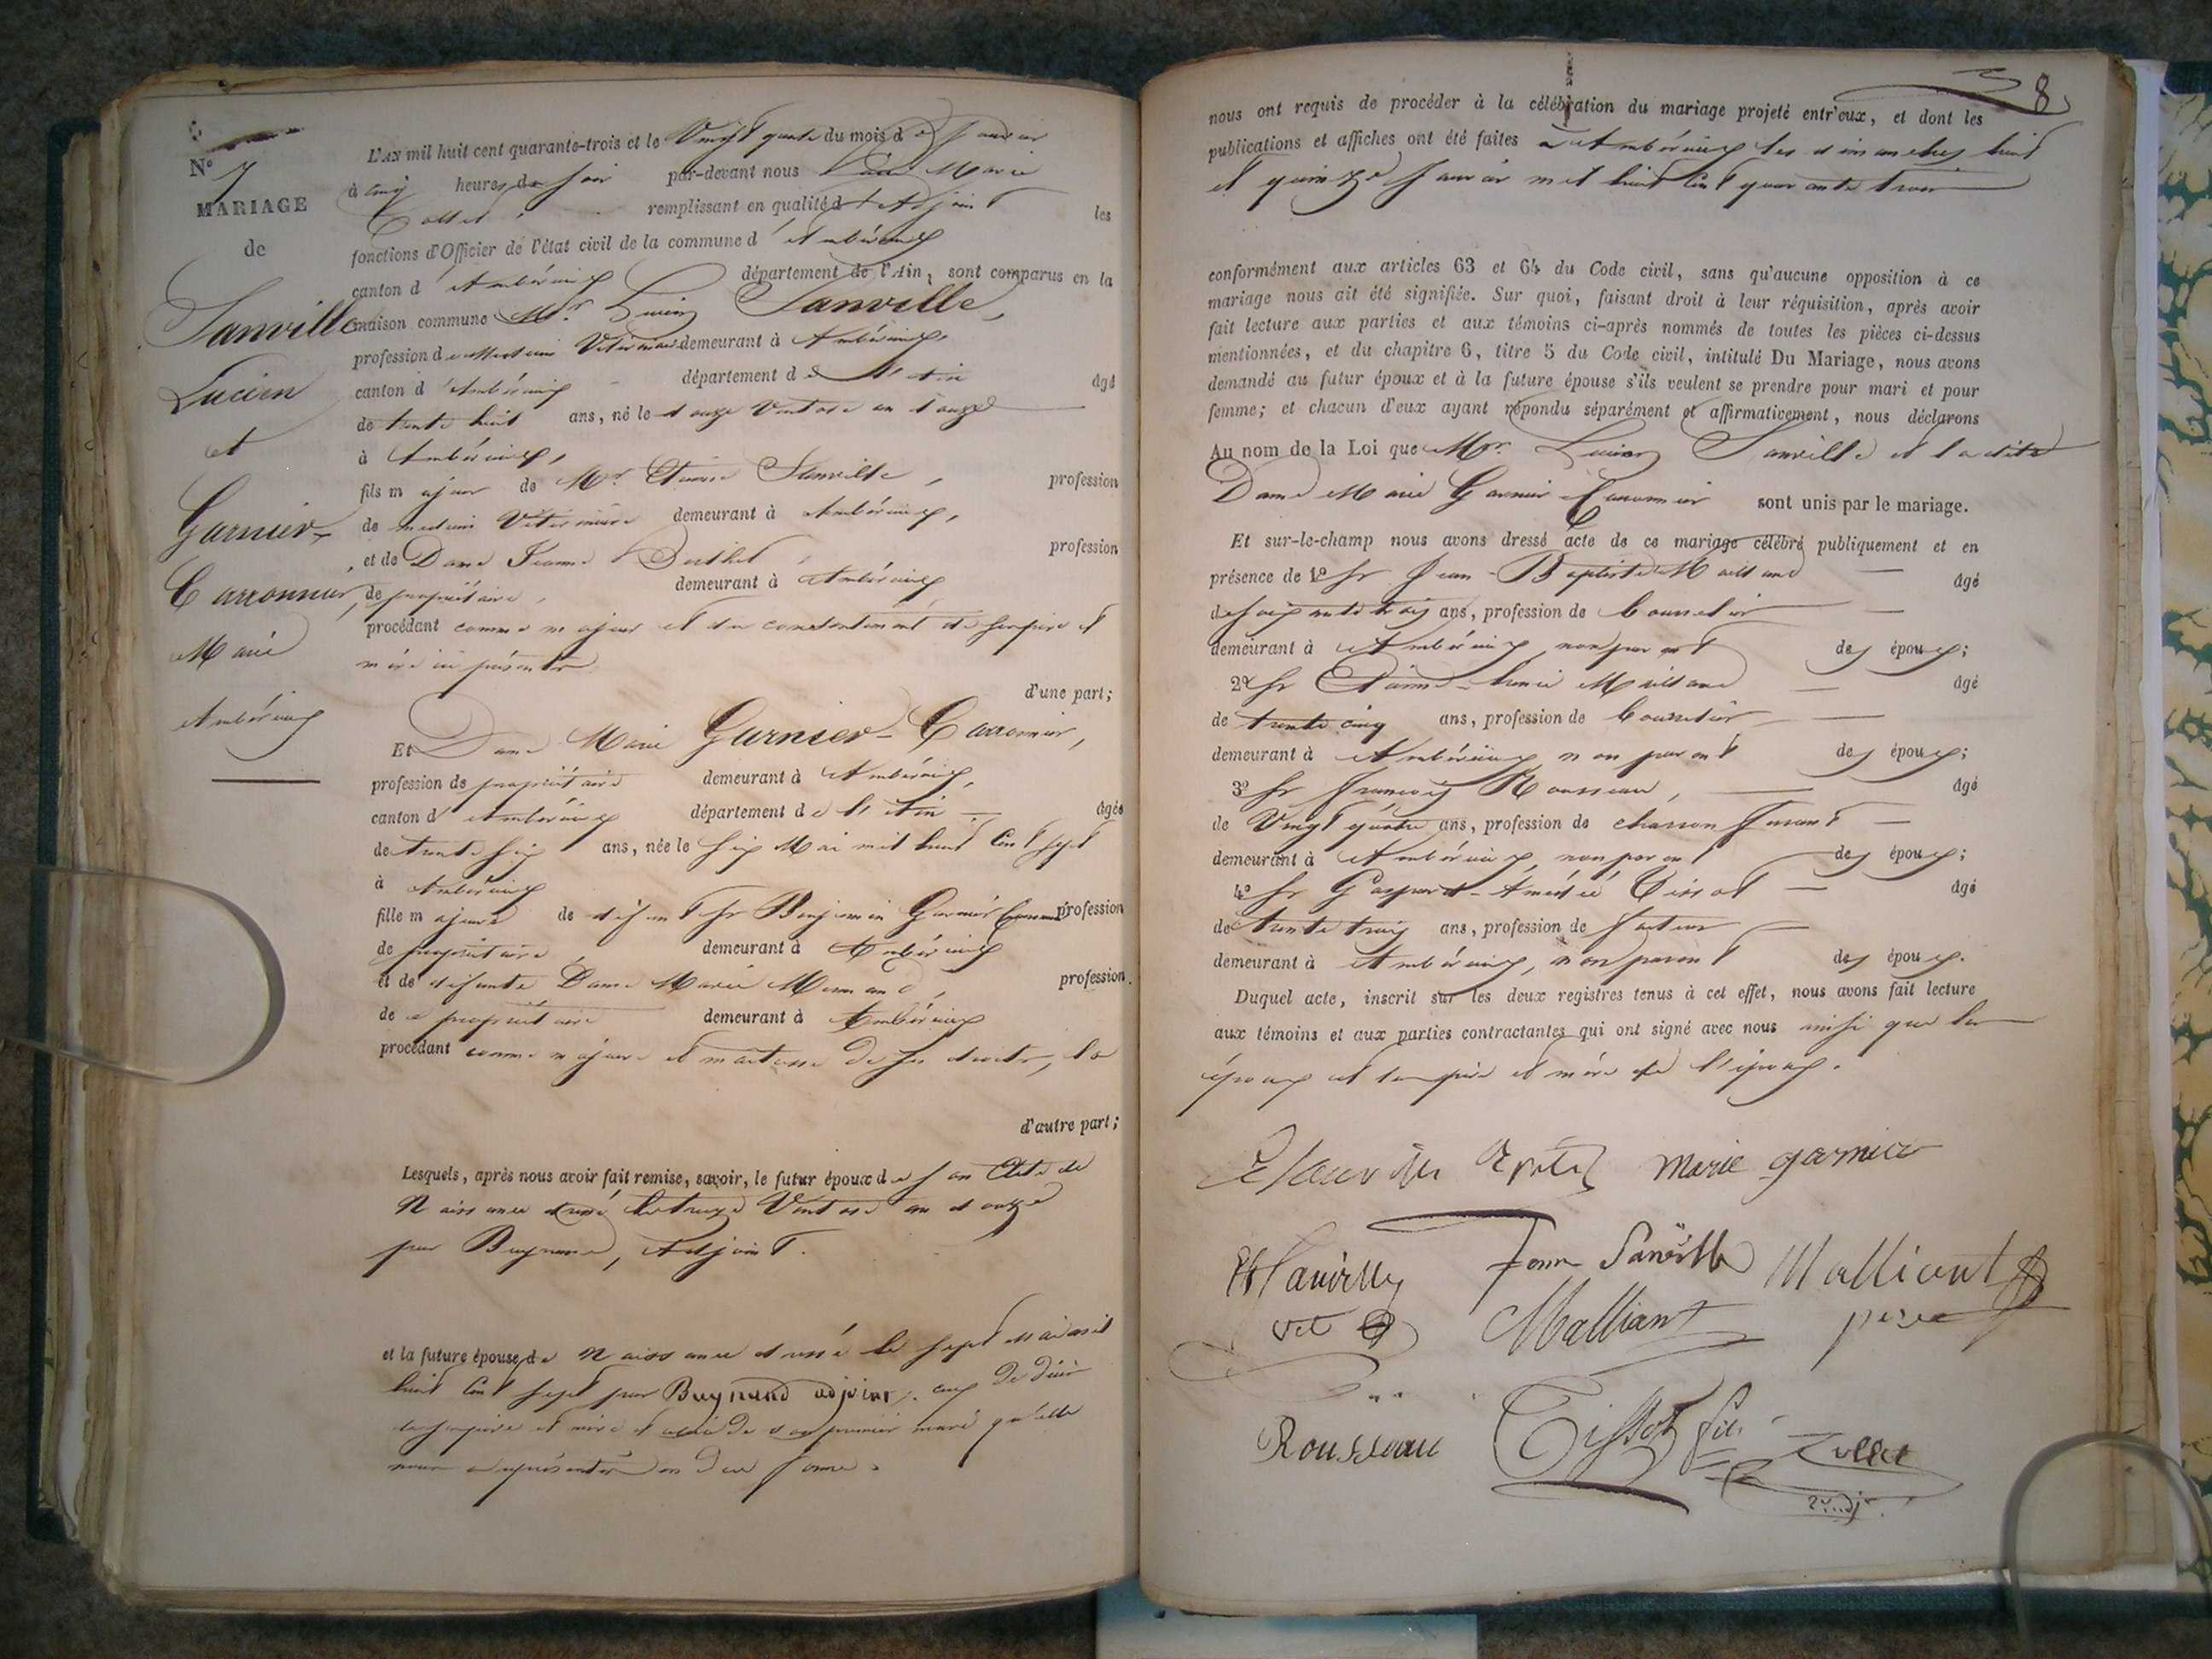 N° 7
MARIAGE
de
Sanville
Lucien
et
Garnier-
Carronnier,
Marie
Ambérieux
L'AN mil huit cent quarante-trois et le Vingt quatre du mois de Janvier
à cinq heures du soir par-devant nous Marie
Collet remplissant en qualité d'Adjoint les
fonctions d'Officier de l'état civil de la commune d'Ambérieux
canton d'Ambérieux département de l'Ain, sont comparus en la
maison commune Mr. Lucien Sanville,
profession de Medecin Vétérinaire demeurant à Ambérieux,
canton d'Ambérieux département de l'Ain âgé
de trente huit ans, né le douze Ventose an douze
à Ambérieux,
fils majeur de Mr Etienne Sanville, profession
de medecin Vétérinaire demeurant à Ambérieux,
et de Dame Jeanne Berthet, profession
de propriétaire, demeurant à Ambérieux
procédant comme majeur et du consentement de ses père et
mère ici présents
d'une part;
Et Dame Marie Garnier-Carronnier,
profession de propriétaire demeurant à Ambérieux,
canton d'Ambérieux département de l'Ain âgée
de trente six ans, née le six Mai mil huit cent sept
à Ambérieux
fille majeure de défunt Sr Benjamin Garnier Carronnier profession
de propriétaire, demeurant à Ambérieux
et de défunte Dame Marie , profession
de propriétaire demeurant à Ambérieux
procédant comme majeure et maitresse de ses droits,
d'autre part;
Lesquels, après nous avoir fait remise, savoir, le futur époux de son Acte de
Naissance dressé le treize Ventose an douze
par Buynand, Adjoint.
et la future épouse de Naissance dressé le sept Mai mil
huit cent sept par Buynand adjoint, de décès
de ses père et mère et celui de son premier mari qu'elle
nous a représentés en due forme.
8
nous ont requis de procéder à la célébration du mariage projeté entr'eux, et dont les
publications et affiches ont été faites à Ambérieux les dimanches huit
et quinze Janvier mil huit cent quarante trois
conformément aux articles 63 et 64 du Code civil, sans qu'aucune opposition à ce
mariage nous ait été signifiée. Sur quoi, faisant droit à leur réquisition, après avoir
fait lecture aux parties et aux témoins ci-après nommés de toutes les pièces ci-dessus
mentionnées, et du chapitre 6, titre 5 du Code civil, intitulé Du Mariage, nous avons
demandé au futur époux et à la future épouse s'ils veulent se prendre pour mari et pour
femme; et chacun d'eux ayant répondu séparément et affirmativement, nous déclarons
Au nom de la Loi que Mr. Lucien Sanville et la dite
Dame Marie Garnier-Carronnier sont unis par le mariage.
Et sur-le-champ nous avons dressé acte de ce mariage célébré publiquement et en
présence de 1° Sr Jean-Baptiste âgé
de soixante trois ans, profession de Bourrelier
demeurant à Ambérieux, non parent des époux;
2° Sr âgé
de trente cinq ans, profession de Bourrelier
demeurant à Ambérieux, non parent des époux;
3° Sr François Rousseau, âgé
de Vingt quatre ans, profession de charron
demeurant à Ambérieux, non parent des époux;
4° Sr Gaspard-Amédée Tissot âgé
de trente trois ans, profession de facteur
demeurant à Ambérieux, non parent des époux.
Duquel acte, inscrit sur les deux registres tenus à cet effet, nous avons fait lecture
aux témoins et aux parties contractantes qui ont signé avec nous ainsi que les
époux et les père et mère de l'époux.
marie garnier
Sanville
vet
Sanville
Malliant
père
Malliant
Rousseau
Tissot fils
Collet